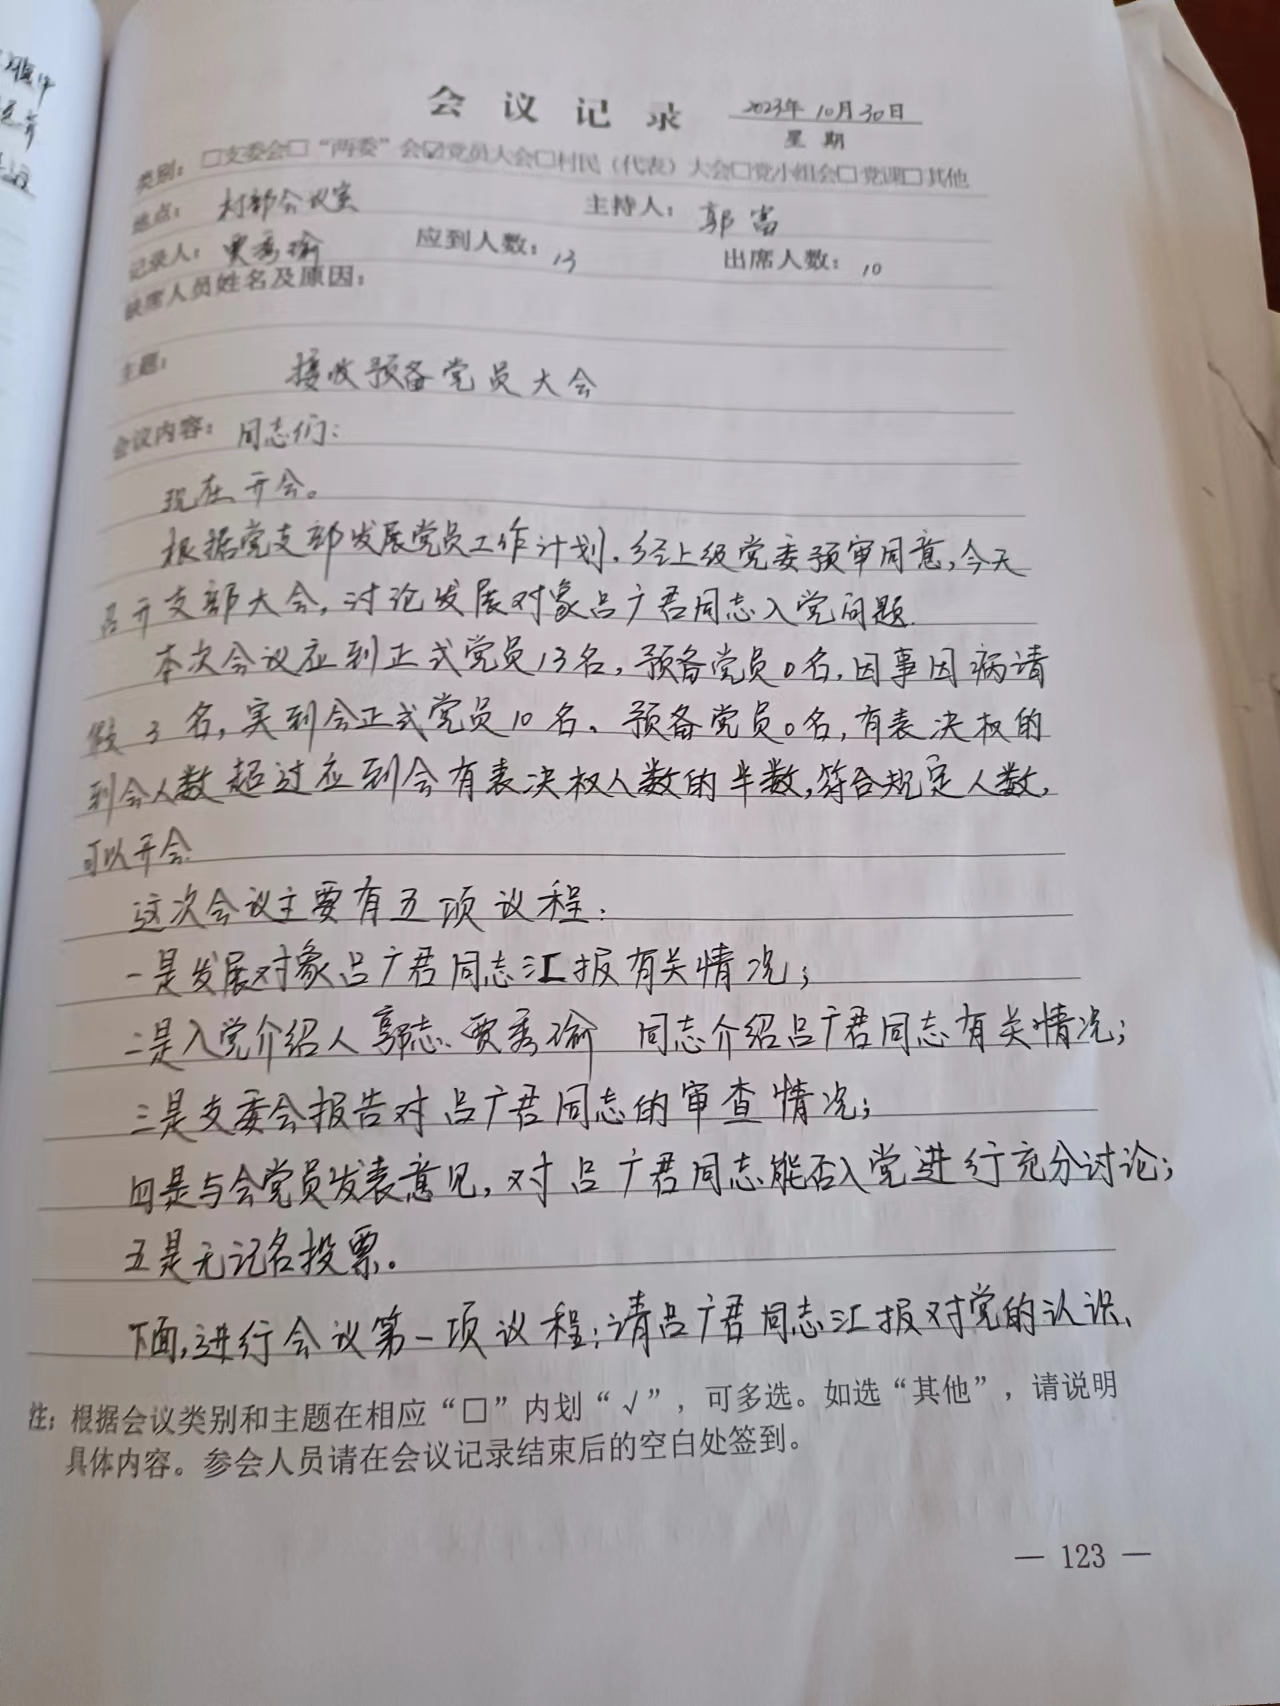 会议记录 2023年10月30日
星期
类别：□支委会□“两委”会☑党员大会□村民（代表）大会□党小组会□党课□其他
地点： 村部会议室 主持人： 郭富
记录人：贾秀瑜 应到人数：13 出席人数：10
缺席人员姓名及原因：
主题： 接收预备党员大会
会议内容： 同志们：
现在开会。
根据党支部发展党员工作计划.经上级党委预审同意,今天
召开支部大会,讨论发展对象吕广君同志入党问题.
本次会议应到正式党员13名,预备党员0名,因事因病请
假3名,实到会正式党员10名、预备党员0名,有表决权的
到会人数超过应到会有表决权人数的半数,符合规定人数,
可以开会.
这次会议主要有五项议程：
一是发展对象吕广君同志汇报有关情况；
二是入党介绍人郭志、贾秀瑜 同志介绍吕广君同志有关情况；
三是支委会报告对吕广君同志的审查情况；
四是与会党员发表意见,对吕广君同志能否入党进行充分讨论；
五是无记名投票。
下面,进行会议第一项议程;请吕广君同志汇报对党的认识、
注：根据会议类别和主题在相应“□”内划“√”，可多选。如选“其他”，请说明
具体内容。参会人员请在会议记录结束后的空白处签到。
— 123 —